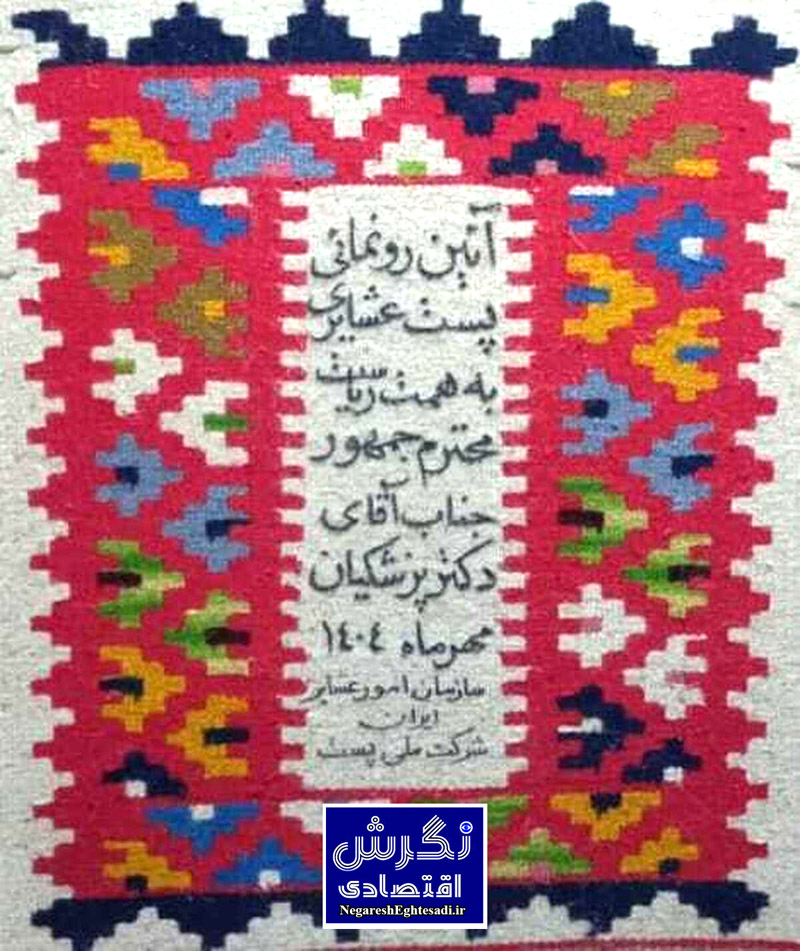 آئین رونمائی
پست عشایری
به همت ریاست
محترم جمهور
جناب آقای
دکتر پزشکیان
مهرماه ۱۴۰۴
سازمان امور عشایر
ایران
شرکت ملی پست
نگرش
اقتصادی
NegareshEghtesadi.ir